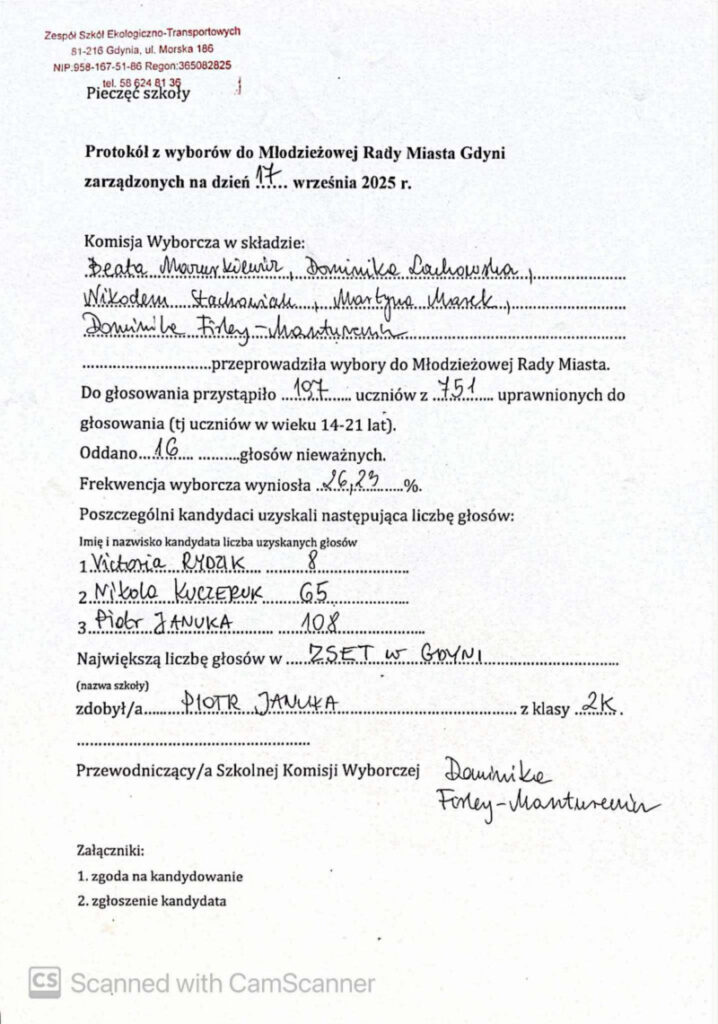 Zespół Szkół Ekologiczno-Transportowych
81-216 Gdynia, ul. Morska 186
NIP.958-167-51-86 Regon:365082825
tel. 58 624 81 36
Pieczęć szkoły
Protokół z wyborów do Młodzieżowej Rady Miasta Gdyni
zarządzonych na dzień 17 września 2025 r.
Komisja Wyborcza w składzie:
Beata Maruszkiewicz, Dominika Lachowska,
Nikodem Stachowiak, Martyna Marek,
Dominika Forley-Manturewicz
....................przeprowadziła wybory do Młodzieżowej Rady Miasta.
Do głosowania przystąpiło ...197... uczniów z ..751.... uprawnionych do
głosowania (tj uczniów w wieku 14-21 lat).
Oddano...16.... ..........głosów nieważnych.
Frekwencja wyborcza wyniosła .26,23.....%.
Poszczególni kandydaci uzyskali następująca liczbę głosów:
Imię i nazwisko kandydata liczba uzyskanych głosów
1 Victoria RYDZIK 8
2 Nikola KUCZERUK 65
3 Piotr JANUKA 108
Największą liczbę głosów w ....ZSET W GDYNI
(nazwa szkoły)
zdobył/a........PIOTR JANUKA z klasy ..2K..
Przewodniczący/a Szkolnej Komisji Wyborczej Dominika
Forley-Manturewicz
Załączniki:
1. zgoda na kandydowanie
2. zgłoszenie kandydata
CS Scanned with CamScanner